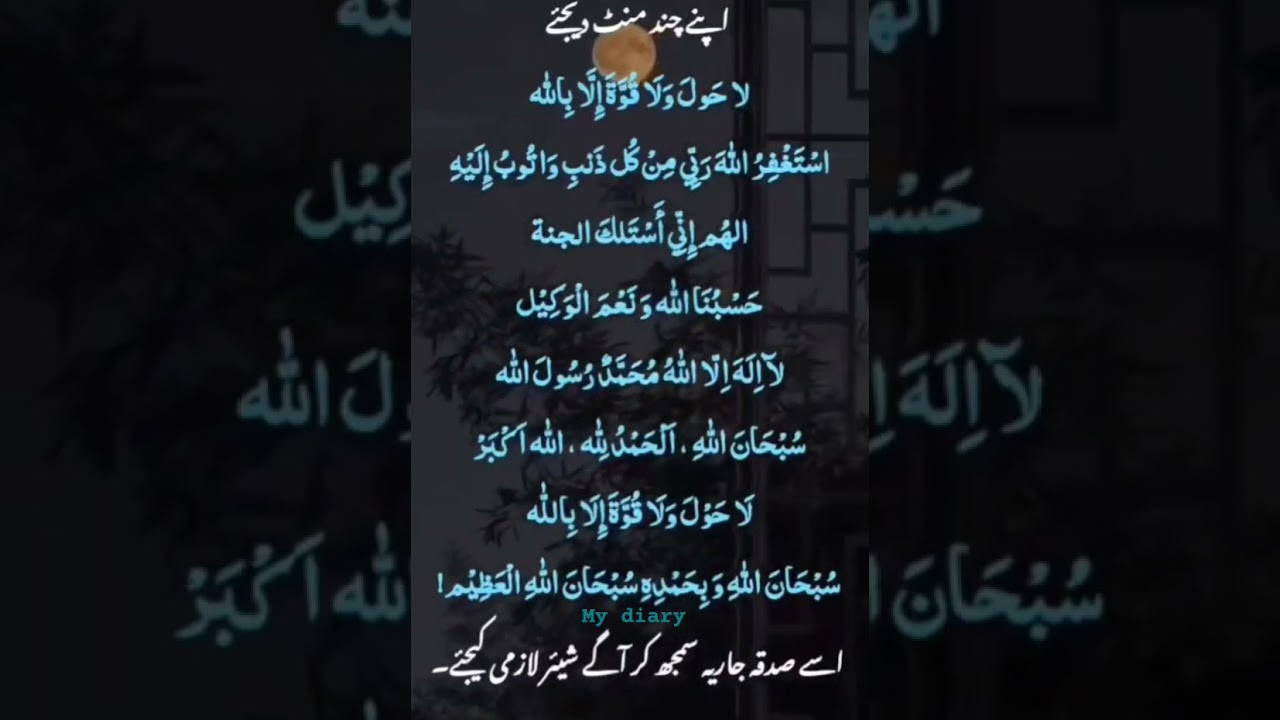 اپنے چند منٹ دیجئے
لا حَولَ وَلَا قُوَّةَ إِلَّا بِالله
اسْتَغْفِرُ اللهَ رَبِّي مِنْ كُل ذَنبِ وَاتُوبُ إِلَيْهِ
الهُم إِنِّي أَسْتَلكَ الجنة
حَسْبُنَا الله وَنَعْمَ الْوَكِيْل
لآ اِلَهَ اِلّا اللهُ مُحَمَّدٌ رُسُولَ الله
سُبْحَانَ اللهِ ، اَلْحَمْدُ لِلّٰه ، الله اَكْبَرْ
لَا حَوْلَ وَلَا قُوَّةَ إِلَا بِالله
سُبْحَانَ اللهِ وَ بِحَمْدِهِ سُبْحَانَ اللهِ الْعَظِيْم!
My diary
اسے صدقہ جاریہ سمجھ کر آگے شیئر لازمی کیجئے۔